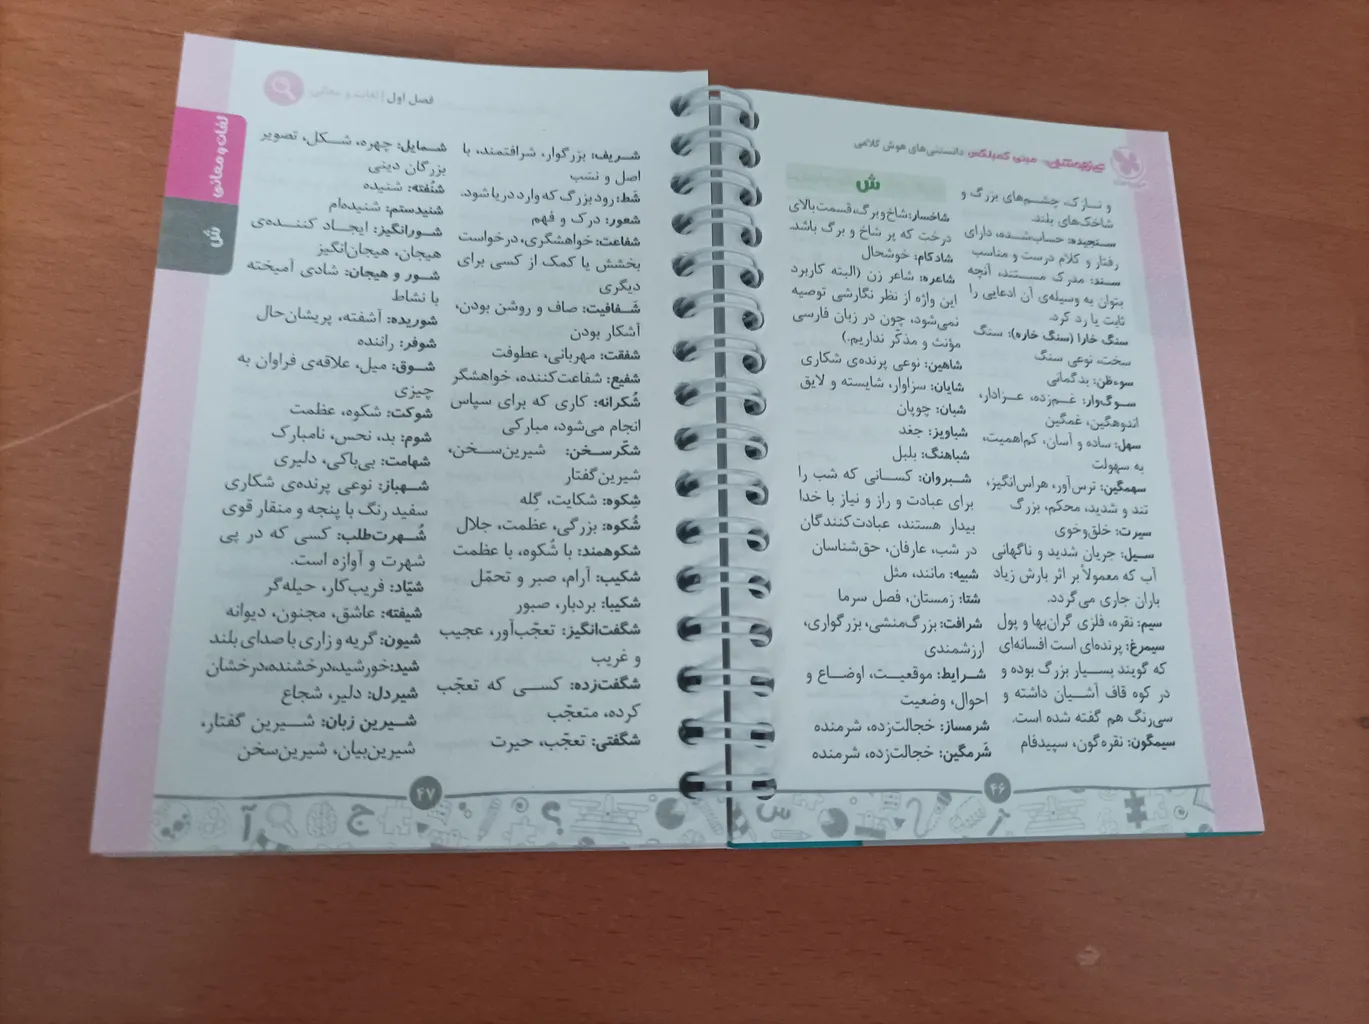 تیزهوشان مینی کمپلکس دانستنی‌های هوش کلامی
و نازک، چشم‌های بزرگ و
شاخک‌های بلند.
سنجیده: حساب‌شده، دارای
رفتار و کلام درست و مناسب
سند: مدرک مستند، آنچه
بتوان به وسیله‌ی آن ادعایی را
ثابت یا رد کرد.
سنگ خارا (سنگ خاره): سنگ
سخت، نوعی سنگ
سوءظن: بدگمانی
سوگ‌وار: غم‌زده، عزادار،
اندوهگین، غمگین
سهل: ساده و آسان، کم‌اهمیت،
به سهولت
سهمگین: ترس‌آور، هراس‌انگیز،
تند و شدید، محکم، بزرگ
سیرت: خلق‌وخوی
سیل: جریان شدید و ناگهانی
آب که معمولاً بر اثر بارش زیاد
باران جاری می‌گردد.
سیم: نقره، فلزی گران‌بها و پول
سیمرغ: پرنده‌ای است افسانه‌ای
که گویند بسیار بزرگ بوده و
در کوه قاف آشیان داشته و
سی‌رنگ هم گفته شده است.
سیمگون: نقره‌گون، سپیدفام
ش
شاخسار: شاخ و برگ، قسمت بالای
درخت که پر شاخ و برگ باشد.
شادکام: خوشحال
شاعره: شاعر زن (البته کاربرد
این واژه از نظر نگارشی توصیه
نمی‌شود، چون در زبان فارسی
مؤنث و مذکّر نداریم.)
شاهین: نوعی پرنده‌ی شکاری
شایان: سزاوار، شایسته و لایق
شبان: چوپان
شباویز: جغد
شباهنگ: بلبل
شبروان: کسانی که شب را
برای عبادت و راز و نیاز با خدا
بیدار هستند، عبادت‌کنندگان
در شب، عارفان، حق‌شناسان
شبیه: مانند، مثل
شتا: زمستان، فصل سرما
شرافت: بزرگ‌منشی، بزرگواری،
ارزشمندی
شرایط: موقعیت، اوضاع و
احوال، وضعیت
شرمساز: خجالت‌زده، شرمنده
شَرمگین: خجالت‌زده، شرمنده
۴۶
فصل اول | لغات و معانی
لغات و معانی
ش
شریف: بزرگوار، شرافتمند، با
اصل و نسَب
شط: رود بزرگ که وارد دریا شود.
شعور: درک و فهم
شفاعت: خواهشگری، درخواست
بخشش یا کمک از کسی برای
دیگری
شَفافیت: صاف و روشن بودن،
آشکار بودن
شفقت: مهربانی، عطوفت
شفیع: شفاعت‌کننده، خواهشگر
شُکرانه: کاری که برای سپاس
انجام می‌شود، مبارکی
شکّرسخن: شیرین‌سخن،
شیرین‌گفتار
شِکوه: شکایت، گِله
شُکوه: بزرگی، عظمت، جلال
شکوهمند: با شُکوه، با عظمت
شکیب: آرام، صبر و تحمّل
شکیبا: بردبار، صبور
شگفت‌انگیز: تعجّب‌آور، عجیب
و غریب
شگفت‌زده: کسی که تعجّب
کرده، متعجّب
شگفتی: تعجّب، حیرت
شمایل: چهره، شکل، تصویر
بزرگان دینی
شنُفته: شنیده
شنیدستم: شنیده‌ام
شورانگیز: ایجاد کننده‌ی
هیجان، هیجان‌انگیز
شور و هیجان: شادی آمیخته
با نشاط
شوریده: آشفته، پریشان‌حال
شوفر: راننده
شوق: میل، علاقه‌ی فراوان به
چیزی
شوکت: شکوه، عظمت
شوم: بد، نحس، نامبارک
شهامت: بی‌باکی، دلیری
شهباز: نوعی پرنده‌ی شکاری
سفید رنگ با پنجه و منقار قوی
شُهرت‌طلب: کسی که در پی
شهرت و آوازه است.
شیّاد: فریب‌کار، حیله‌گر
شیفته: عاشق، مجنون، دیوانه
شیون: گریه و زاری با صدای بلند
شید: خورشید، درخشنده، درخشان
شیردل: دلیر، شجاع
شیرین زبان: شیرین گفتار،
شیرین‌بیان، شیرین‌سخن
۴۷